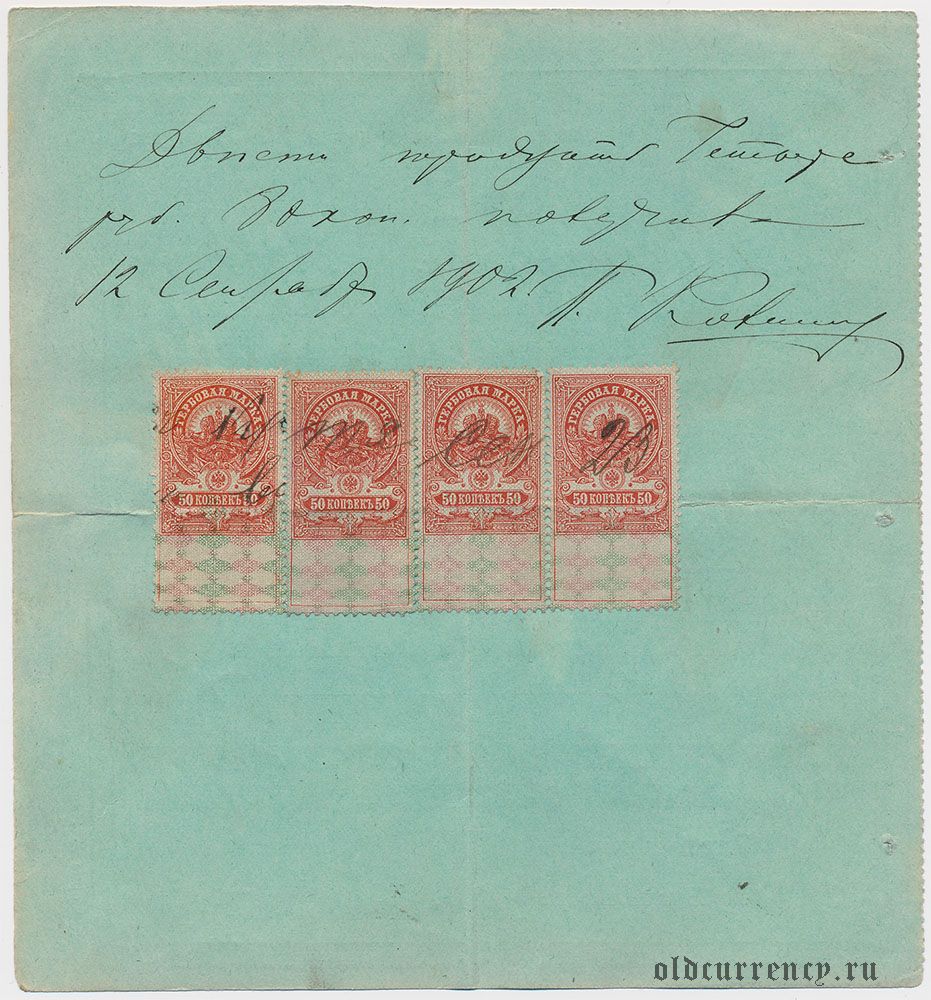 Двѣсти тридцать Четыре
руб. 80 коп. получилъ
12 Сентября 1902. П.
ГЕРБОВАЯ МАРКА ГЕРБОВАЯ МАРКА ГЕРБОВАЯ МАРКА ГЕРБОВАЯ МАРКА
50 КОПѢЕКЪ 50 50 КОПѢЕКЪ 50 50 КОПѢЕКЪ 50 50 КОПѢЕКЪ 50
oldcurrency.ru